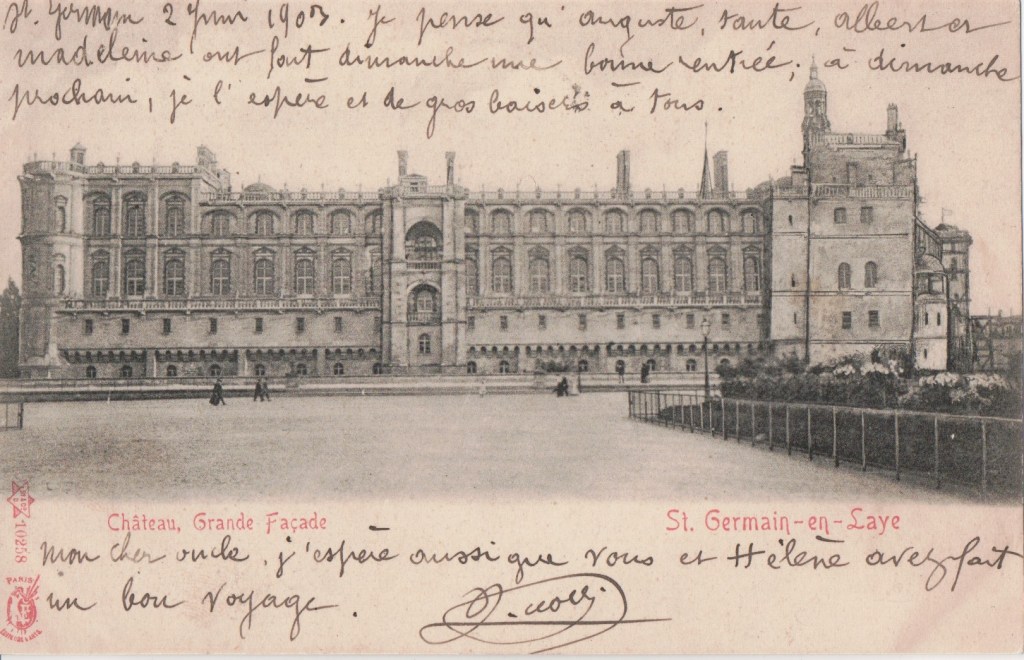 St. Germain 2 Juin 1903. Je pense qu'auguste, tante, albert et
madeleine ont fait dimanche une bonne rentrée; à dimanche
prochain, je l'espère et de gros baisers à tous.
Château, Grande Façade
St. Germain-en-Laye
10258
mon cher oncle, j'espère aussi que vous et Hélène avez fait
un bon voyage.
PARIS